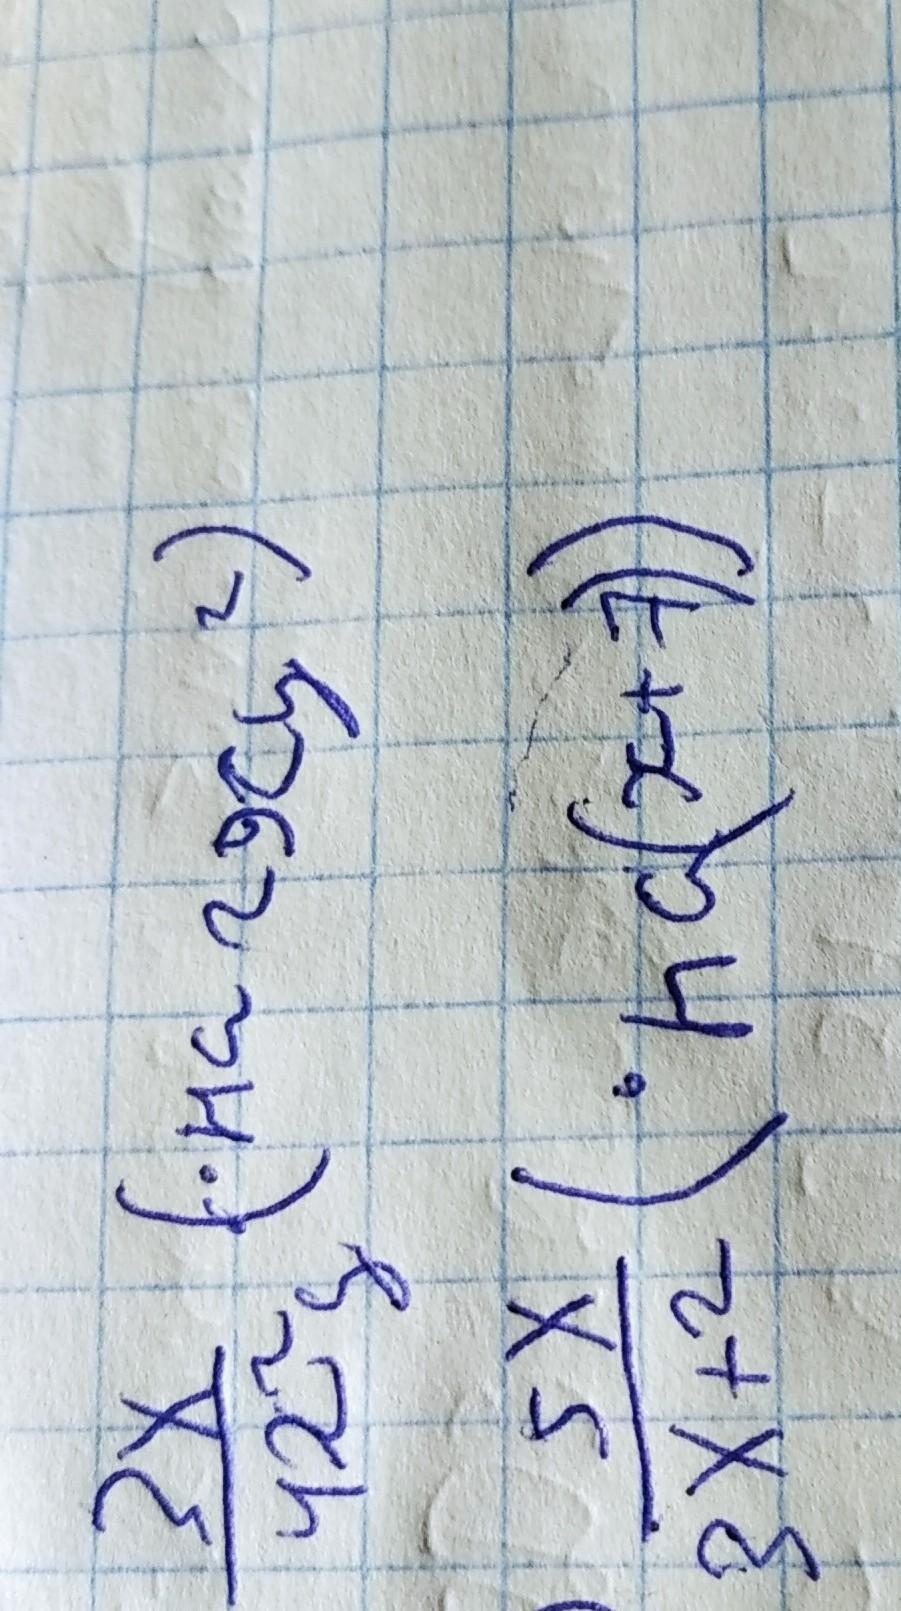 3x
4x²y (· на 2xy²)
5x
3x+2 (· на (x+7))